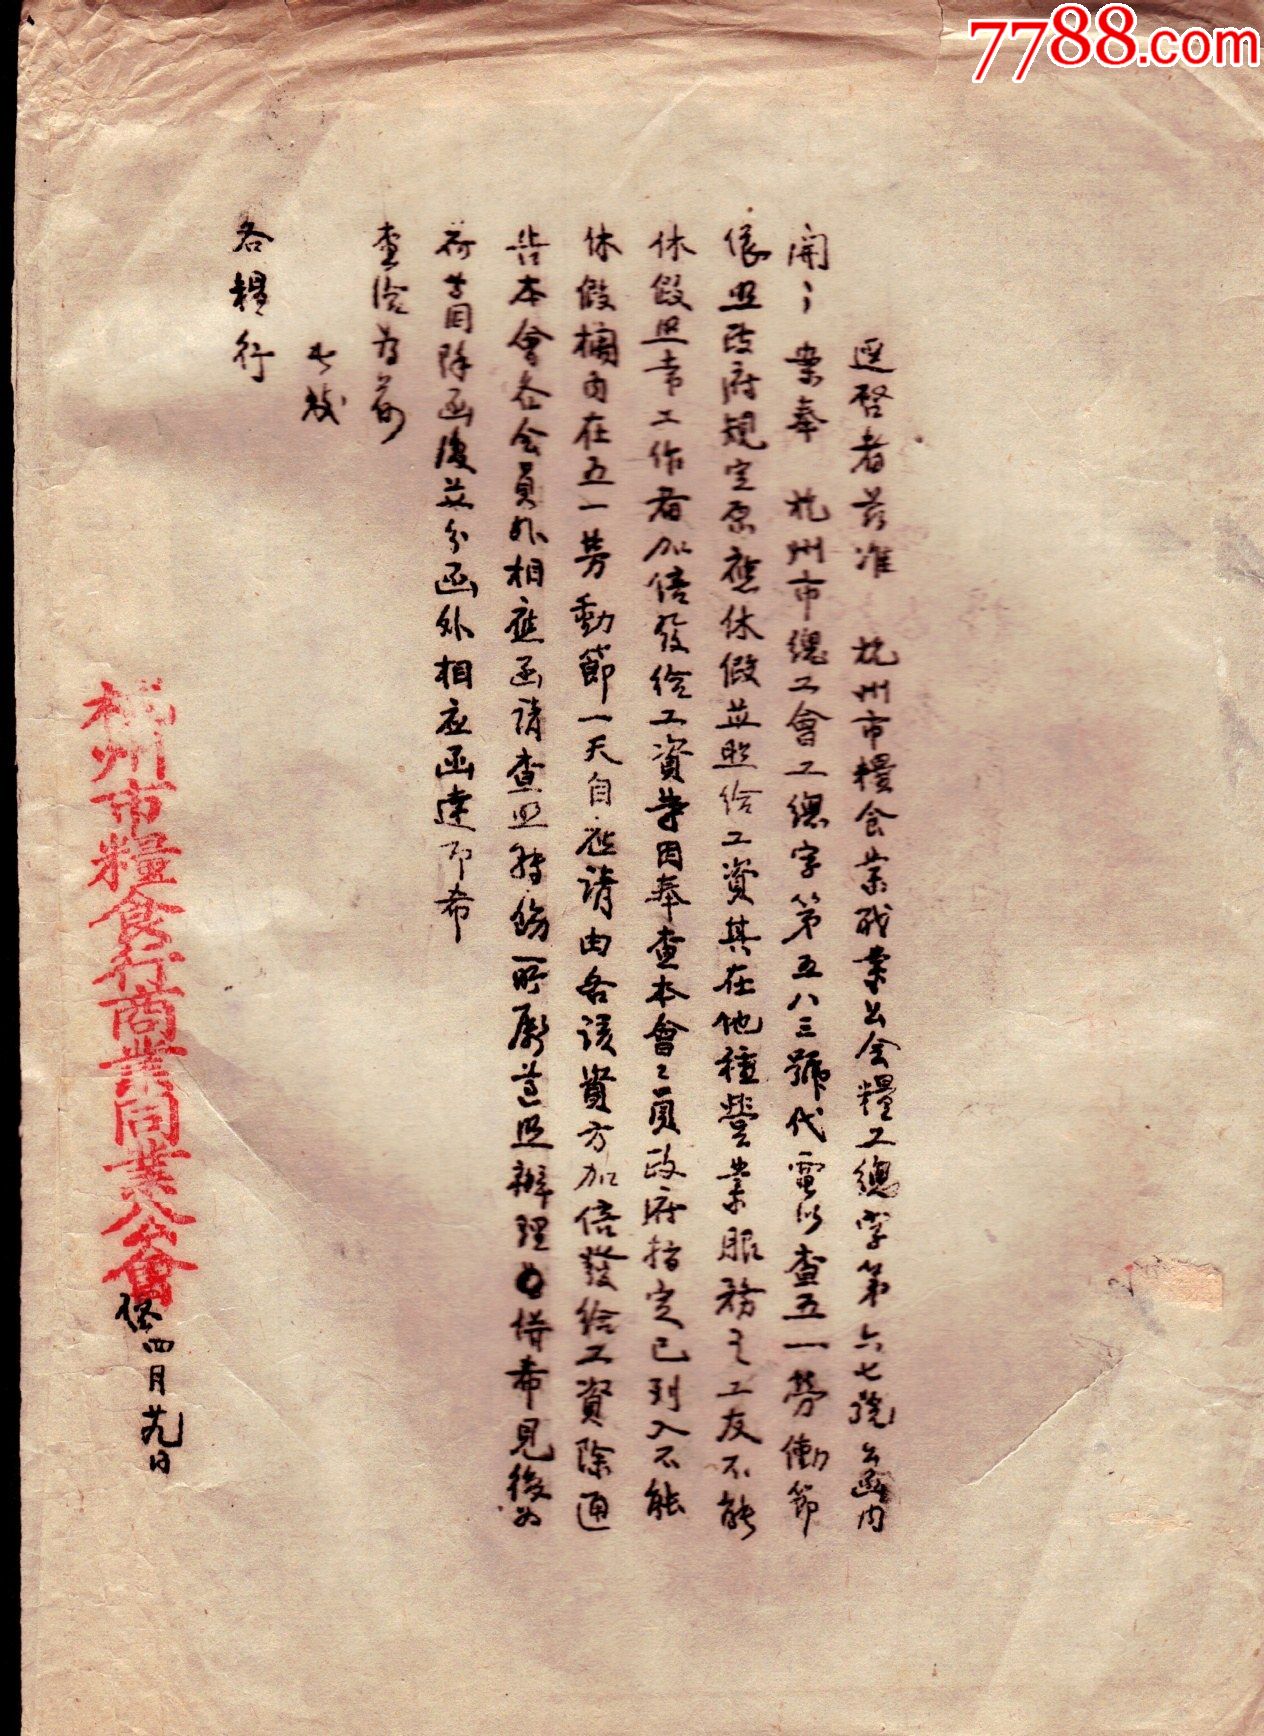 7788.com
逕啓者茲准 杭州市糧食業职業公会糧工總字第六七號公函内
開:案奉 杭州市總工會工總字第五八三號代電以查五一勞働節
依照政府規定原應休假並照给工資其在他種營業服務之工友不能
休假照常工作者加倍發给工資等因奉查本會之員政府指定已列入不能
休假欄内在五一勞動節一天自应請由各該資方加倍發给工資除通
告本會各会員外相應函請查照轉飭所屬遵照辦理並併希見復为
荷等由除函復並分函外相应函達即希
查洽为荷
此致
各糧行
杭州市糧食行商業同業公會
啓四月廿九日